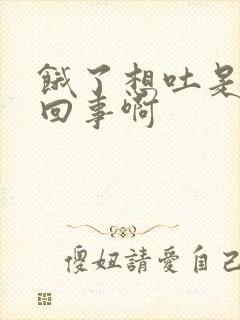 餓了想吐是
回事啊
傻妞請愛自己